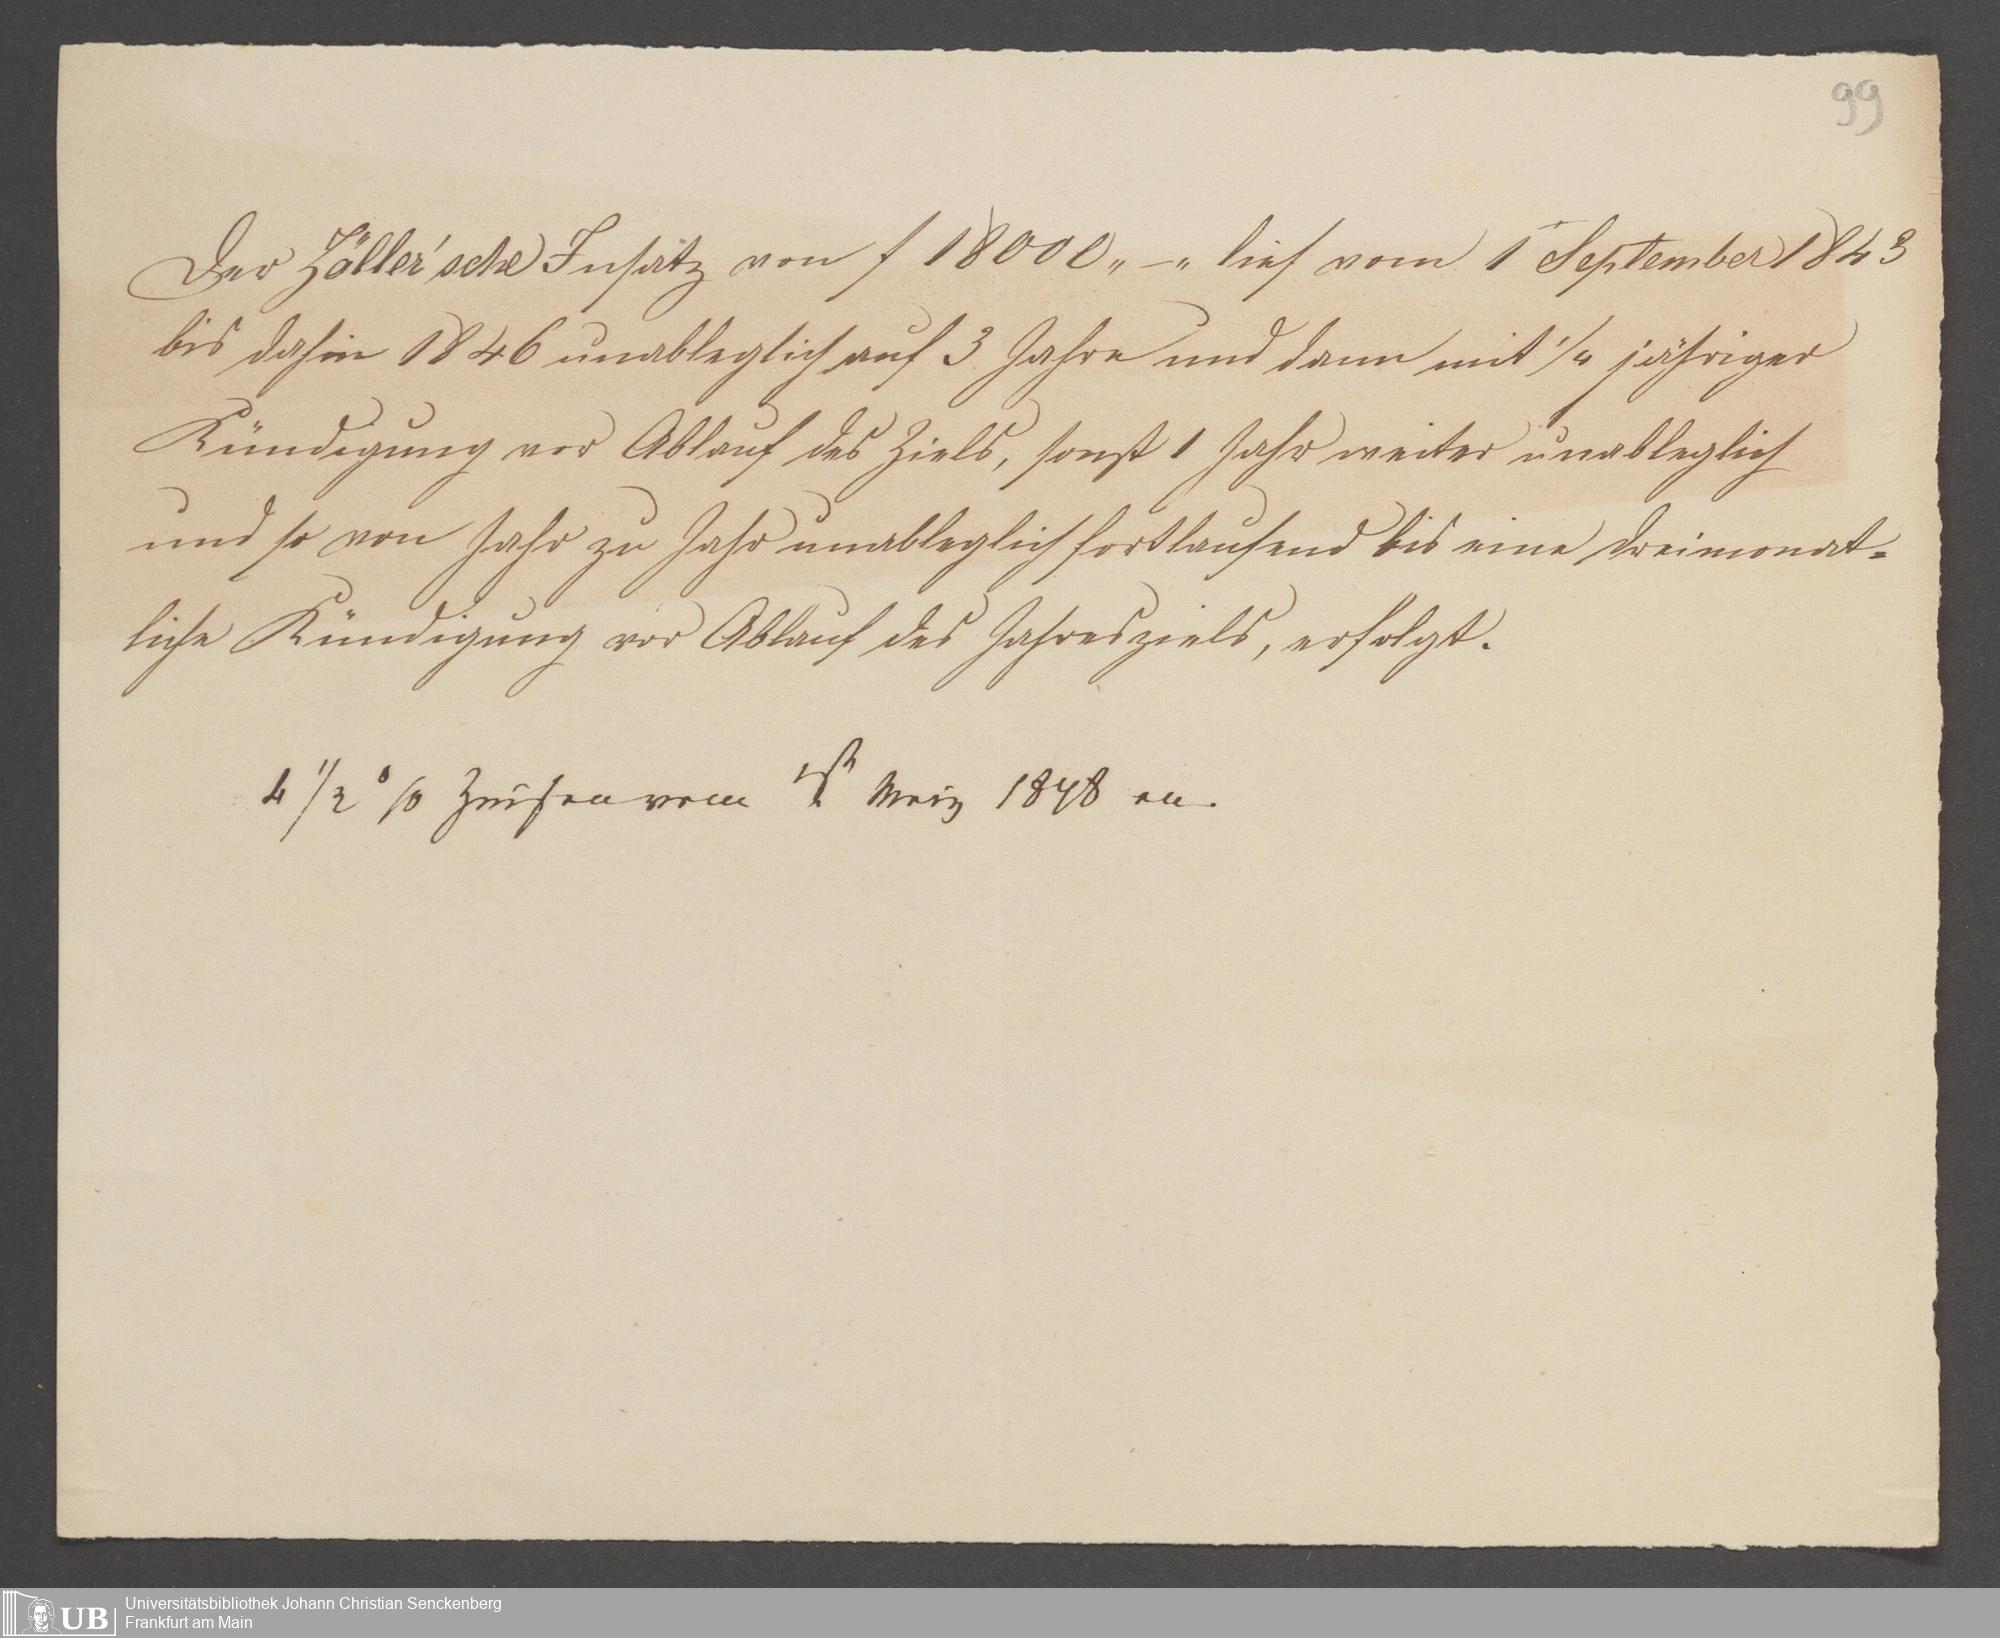 99
Der Zöller'sche Insatz von f 18000 „ – „ lief vom 1 September 1843
bis dahin 1846 unableglich auf 3 Jahre und dann mit 1/4 jähriger
Kündigung vor Ablauf des Ziels, sonst 1 Jahr weiter unableglich
und so von Jahr zu Jahr unableglich fortlaufend bis eine dreimonat=
liche Kündigung vor Ablauf des Jahresziels, erfolgt.
4 1/2 % Zinsen vom 1st März 1848 an.
UB Universitätsbibliothek Johann Christian Senckenberg
Frankfurt am Main